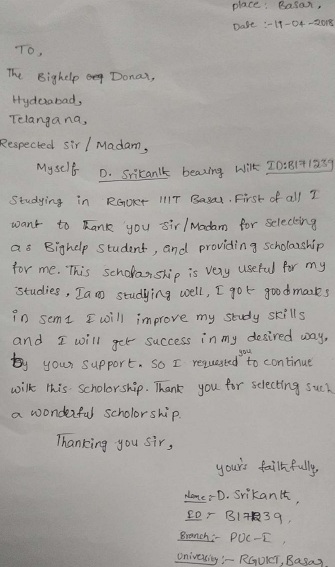 place: Basar,
Date :- 19-04-2018
To,
The Bighelp Donar,
Hyderabad,
Telangana,
Respected Sir/Madam,
Myself D. Srikanth bearing with ID:B171239
Studying in RGUKT IIIT Basar. First of all I
want to thank you sir/Madam for selecting
as Bighelp student, and providing scholarship
for me. This scholarship is very useful for my
studies, Iam studying well, I got good marks
in sem1 I will improve my study skills
and I will get success in my desired way,
by your support. So I requested you to continue
with this scholorship. Thank you for selecting such
a wonderful scholorship.
Thanking you Sir,
your's faithfully,
Name:- D. Srikanth,
ID :- B171239,
Branch:- PUC-I
University:- RGUKT, Basar,